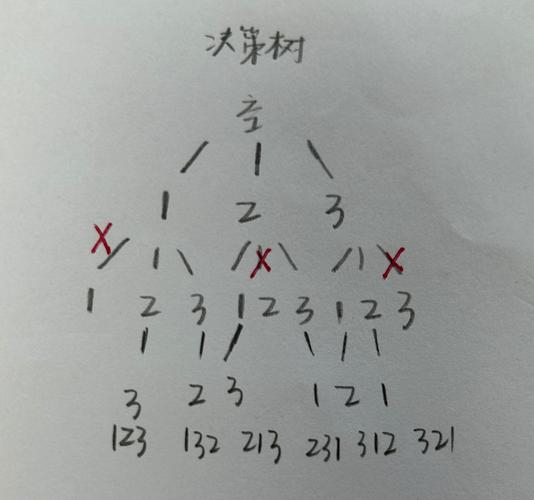 决策树
空
1 2 3
X X X
1 2 3 1 2 3 1 2 3
3 2 3 1 2 1
123 132 213 231 312 321